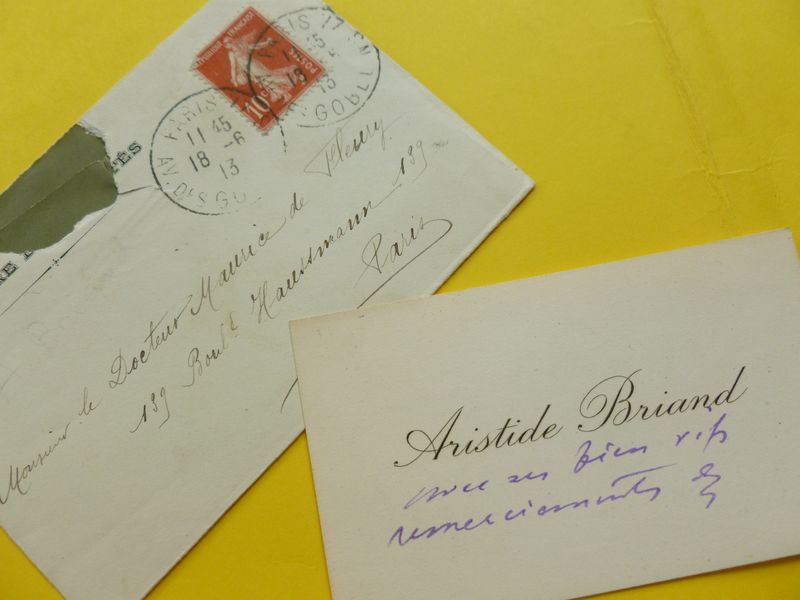 REPUBLIQUE FRANÇAISE
POSTES
10
PARIS
11 45
18 -6
13
AV. D'S GO
IS 17
18
13
GOBEL
ÉS
RE D
Monsieur le Docteur Maurice de Fleury
139 Boulᵈ Haussmann 139
Paris
Aristide Briand
avec ses bien vifs
remerciements